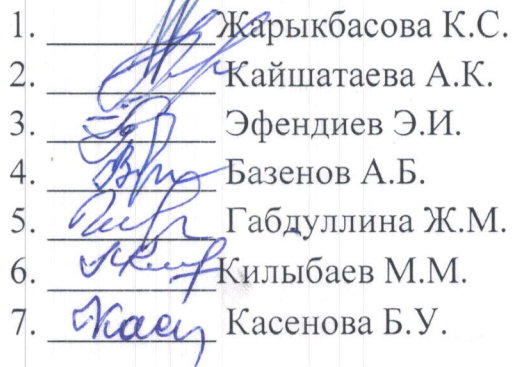 1. Жарыкбасова К.С.
2. Кайшатаева А.К.
3. Эфендиев Э.И.
4. Базенов А.Б.
5. Габдуллина Ж.М.
6. Килыбаев М.М.
7. Касенова Б.У.